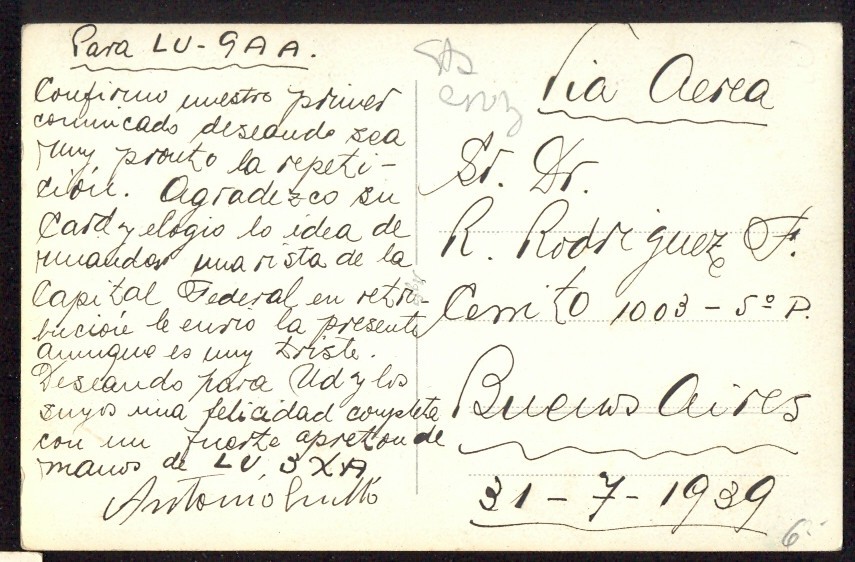 Para LU-9AA.
Confirmo nuestro primer
comunicado deseando sea
muy pronto la repeti-
ción. Agradezco su
Card y elogio lo idea de
mandar una vista de la
Capital Federal en retri-
bución le envio la presente
aunque es muy triste.
Deseando para Ud y los
suyos una felicidad completa
con un fuerte apreton de
manos de LU 3XA
Antonio
Sta
Cruz
Via Aerea
Sr. Dr.
R. Rodriguez F.
Cerrito 1003 - 5º P.
Buenos Aires
31-7-1939
6.-